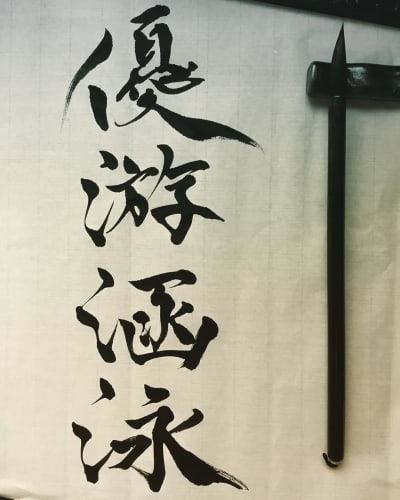 優游涵泳